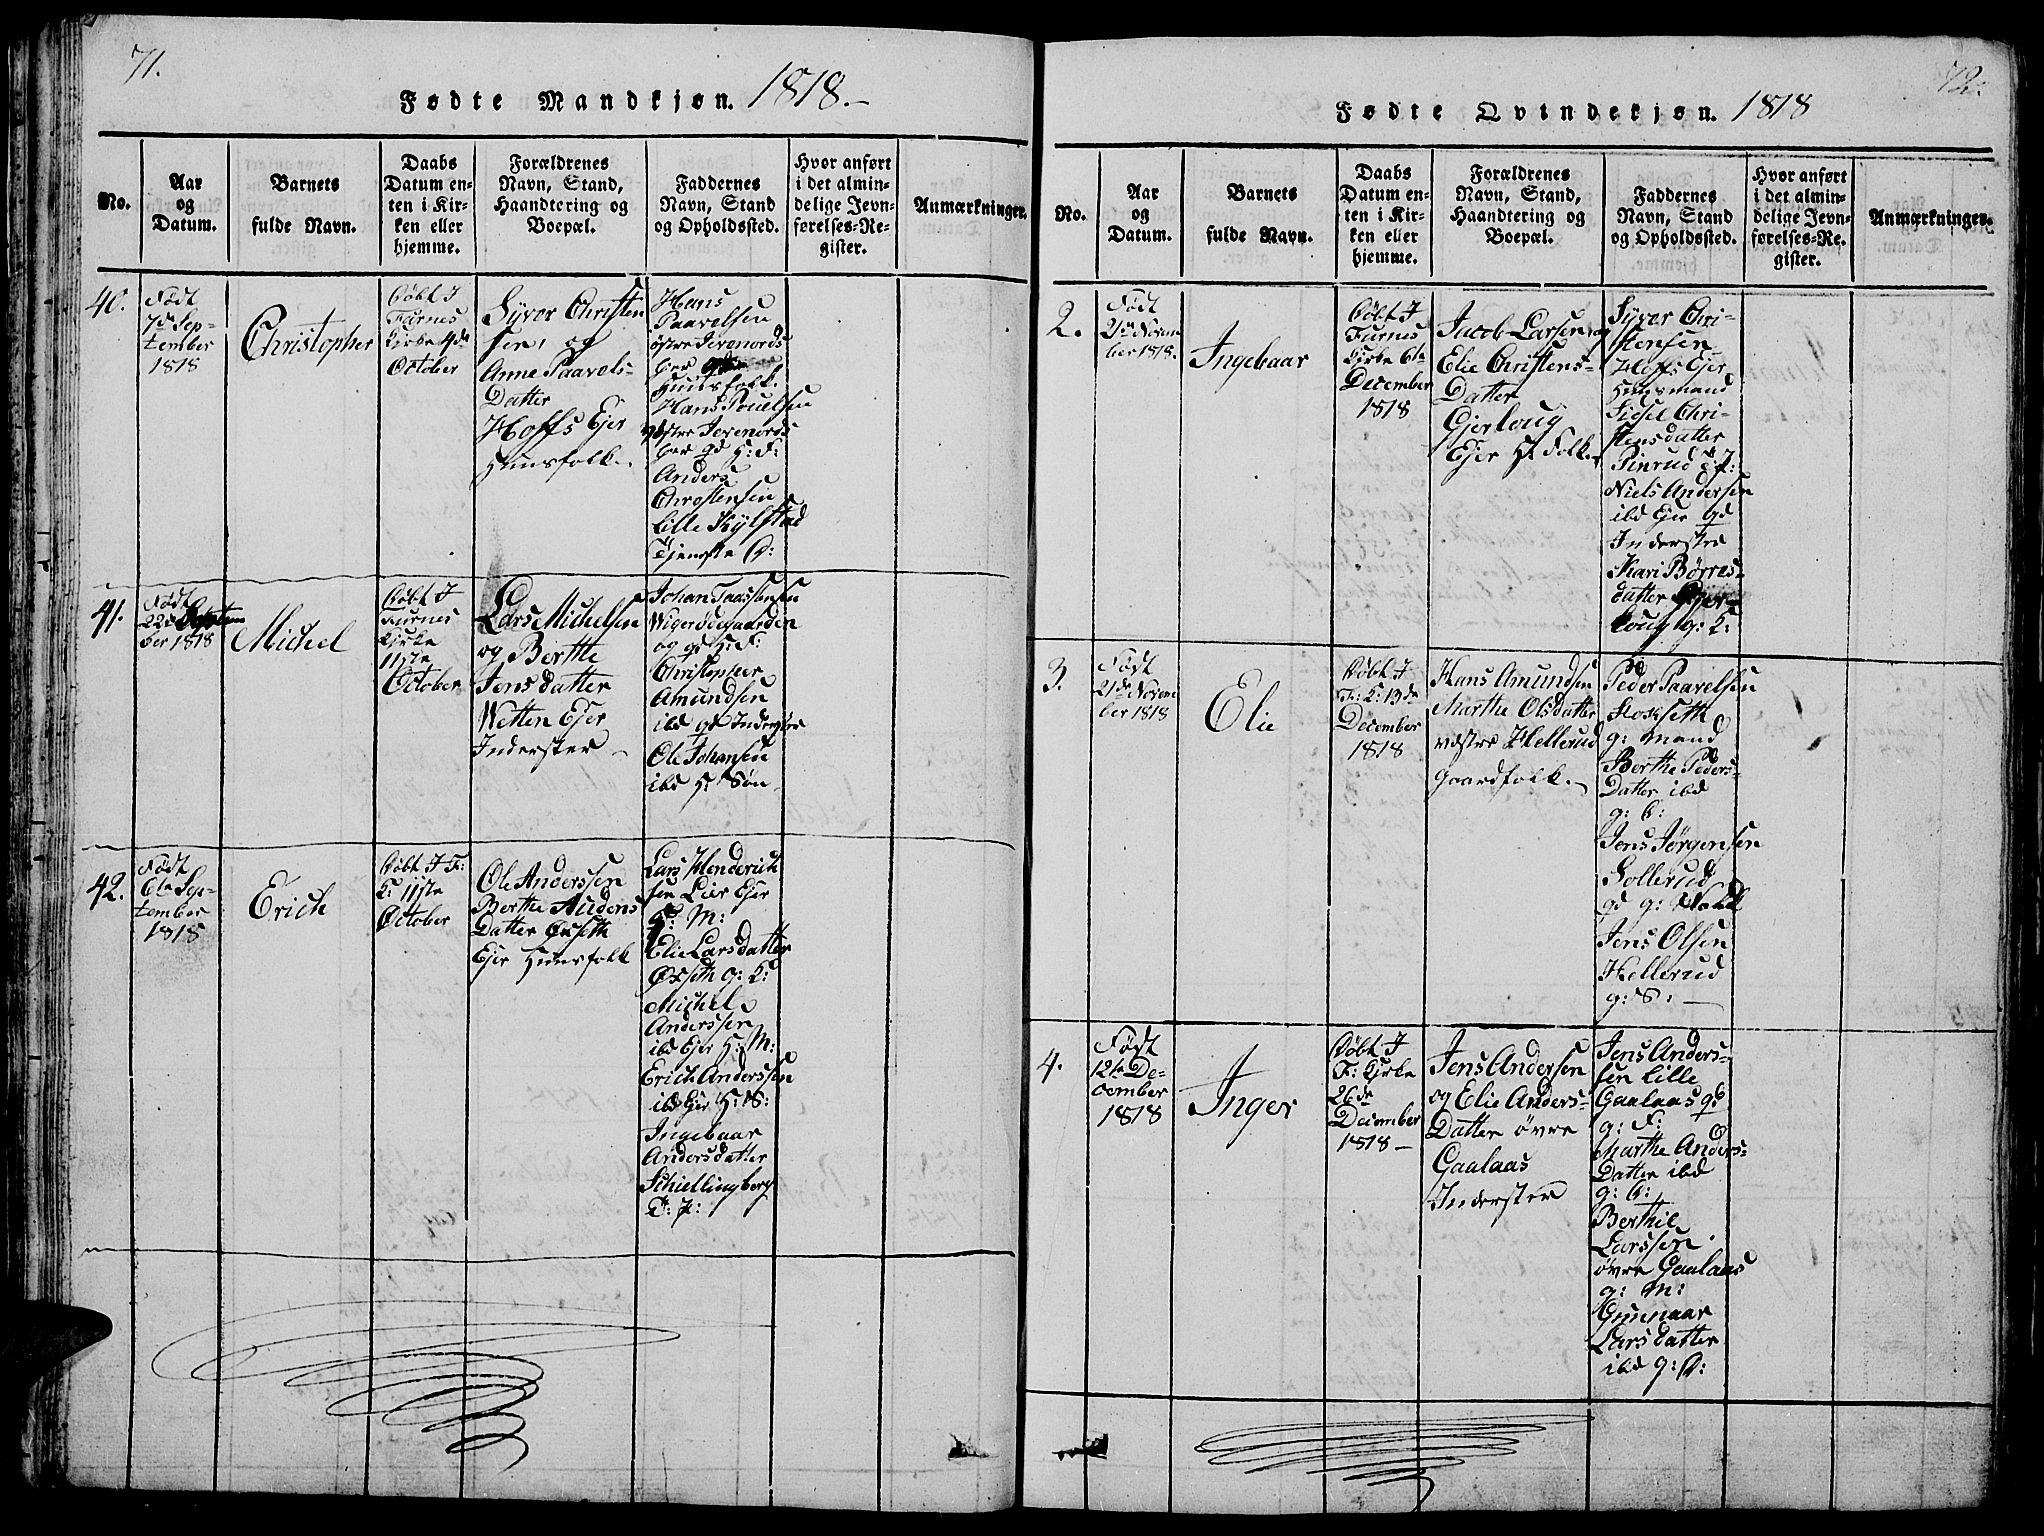 71.
Fødte Mandkjøn. 1818.–
No.
Aar
og
Datum.
Barnets
fulde Navn.
Daabs
Datum en-
ten i Kir-
ken eller
hjemme.
Forældrenes
Navn, Stand,
Haandtering og
Boepæl.
Faddernes
Navn, Stand
og Opholdssted.
Hvor anført
i det almin-
delige Jevn-
førelses-Re-
gister.
Anmærkninger.
40.
Født
7de Sep-
tember
1818
Christopher
Døbt I
Furnes
Kirke 4de
October
Syver Christen
sen, og
Anne Paavels-
Datter
Hoffs Ejer
Huusfolk.
Hans
Paavelsen
østre
Huusfolk.
Hans Poulsen
østre
gd H: F:
Anders
Christensen
Lille Kylstad
Tjeneste D:
41.
Født
22de
ber 1818
Michel
Døbt I
Furnes
Kirke
11ste
October
Lars Michelsen
og Berthe
Jens datter
Wetten Ejer
Inderster –
Johan
og gd H: F:
Christopher
Amundsen
ibd gd Inderste
Ole Johansen
ibd H: Søn
42.
Født
6te Sep-
tember
1818
Erich
Døbt I F:
K: 11ste
October
Ole Anderssen
Berthe Audens
Datter Øxseth
Ejer Huusfolk
Lars Henderich
sen Lier Ejer
H: M:
Elie Lars datter
Øxseth g: K:
Michel
Anderssen
ibd Ejer H: M:
Erich Anderssen
ibd Ejer H: S:
Ingebaar
Andersdatter
Schiellingberg
T: P:
72.
Fødte Qvindekjøn. 1818
No.
Aar
og
Datum.
Barnets
fulde Navn.
Daabs
Datum en-
ten i Kir-
ken eller
hjemme.
Forældrenes
Navn, Stand,
Haandtering og
Boepæl.
Faddernes
Navn, Stand
og Opholdssted.
Hvor anført
i det almin-
delige Jevn-
førelses-Re-
gister.
Anmærkninger.
2.
Født
Novem
ber 1818.
Ingebaar
Døbt I
Furnes
Kirke 6te
December
1818
Jacob Larsen og
Elie Christens-
Datter
Gjerloug
Ejer H: Folk.
Syver Chri-
stensen
Hoffs Ejer
Huusmand
Sidsel Chri-
stensdatter
Pinrud T: P:
Niels Andersen
ibd Ejer gd
Inderste
Kari Børres-
datter Gjer-
loug g: K:
3.
Født
21de Novem
ber 1818
Elie
Døbt I
F: K: 13de
December
1818
Hans Amundsen
Marthe Olsdatter
vestre Hellerud
Gaardfolk.
Peder Paavelsen
Stoxseth
g: Mand
Berthe Peders-
Datter ibd
g: D:
Jens Jørgensen
Sollerud
gd g: Folk
Jens Olsen
Hellerud
g: S: –
4.
Født
12te De-
cember
1818
Inger
Døbt I
F: Kirke
26de
December
1818 –
Jens Andersen
og Elie Anders-
Datter øvre
Gaalaas
Inderster
Jens Anders-
sen Lille
Gaalaas gd
g: F:
Marthe Anders-
Datter ibd
g: D:
Berthil
Larssen
øvre Gaalaas
g: M:
Gunnaar
Lars datter
ibd g: D: